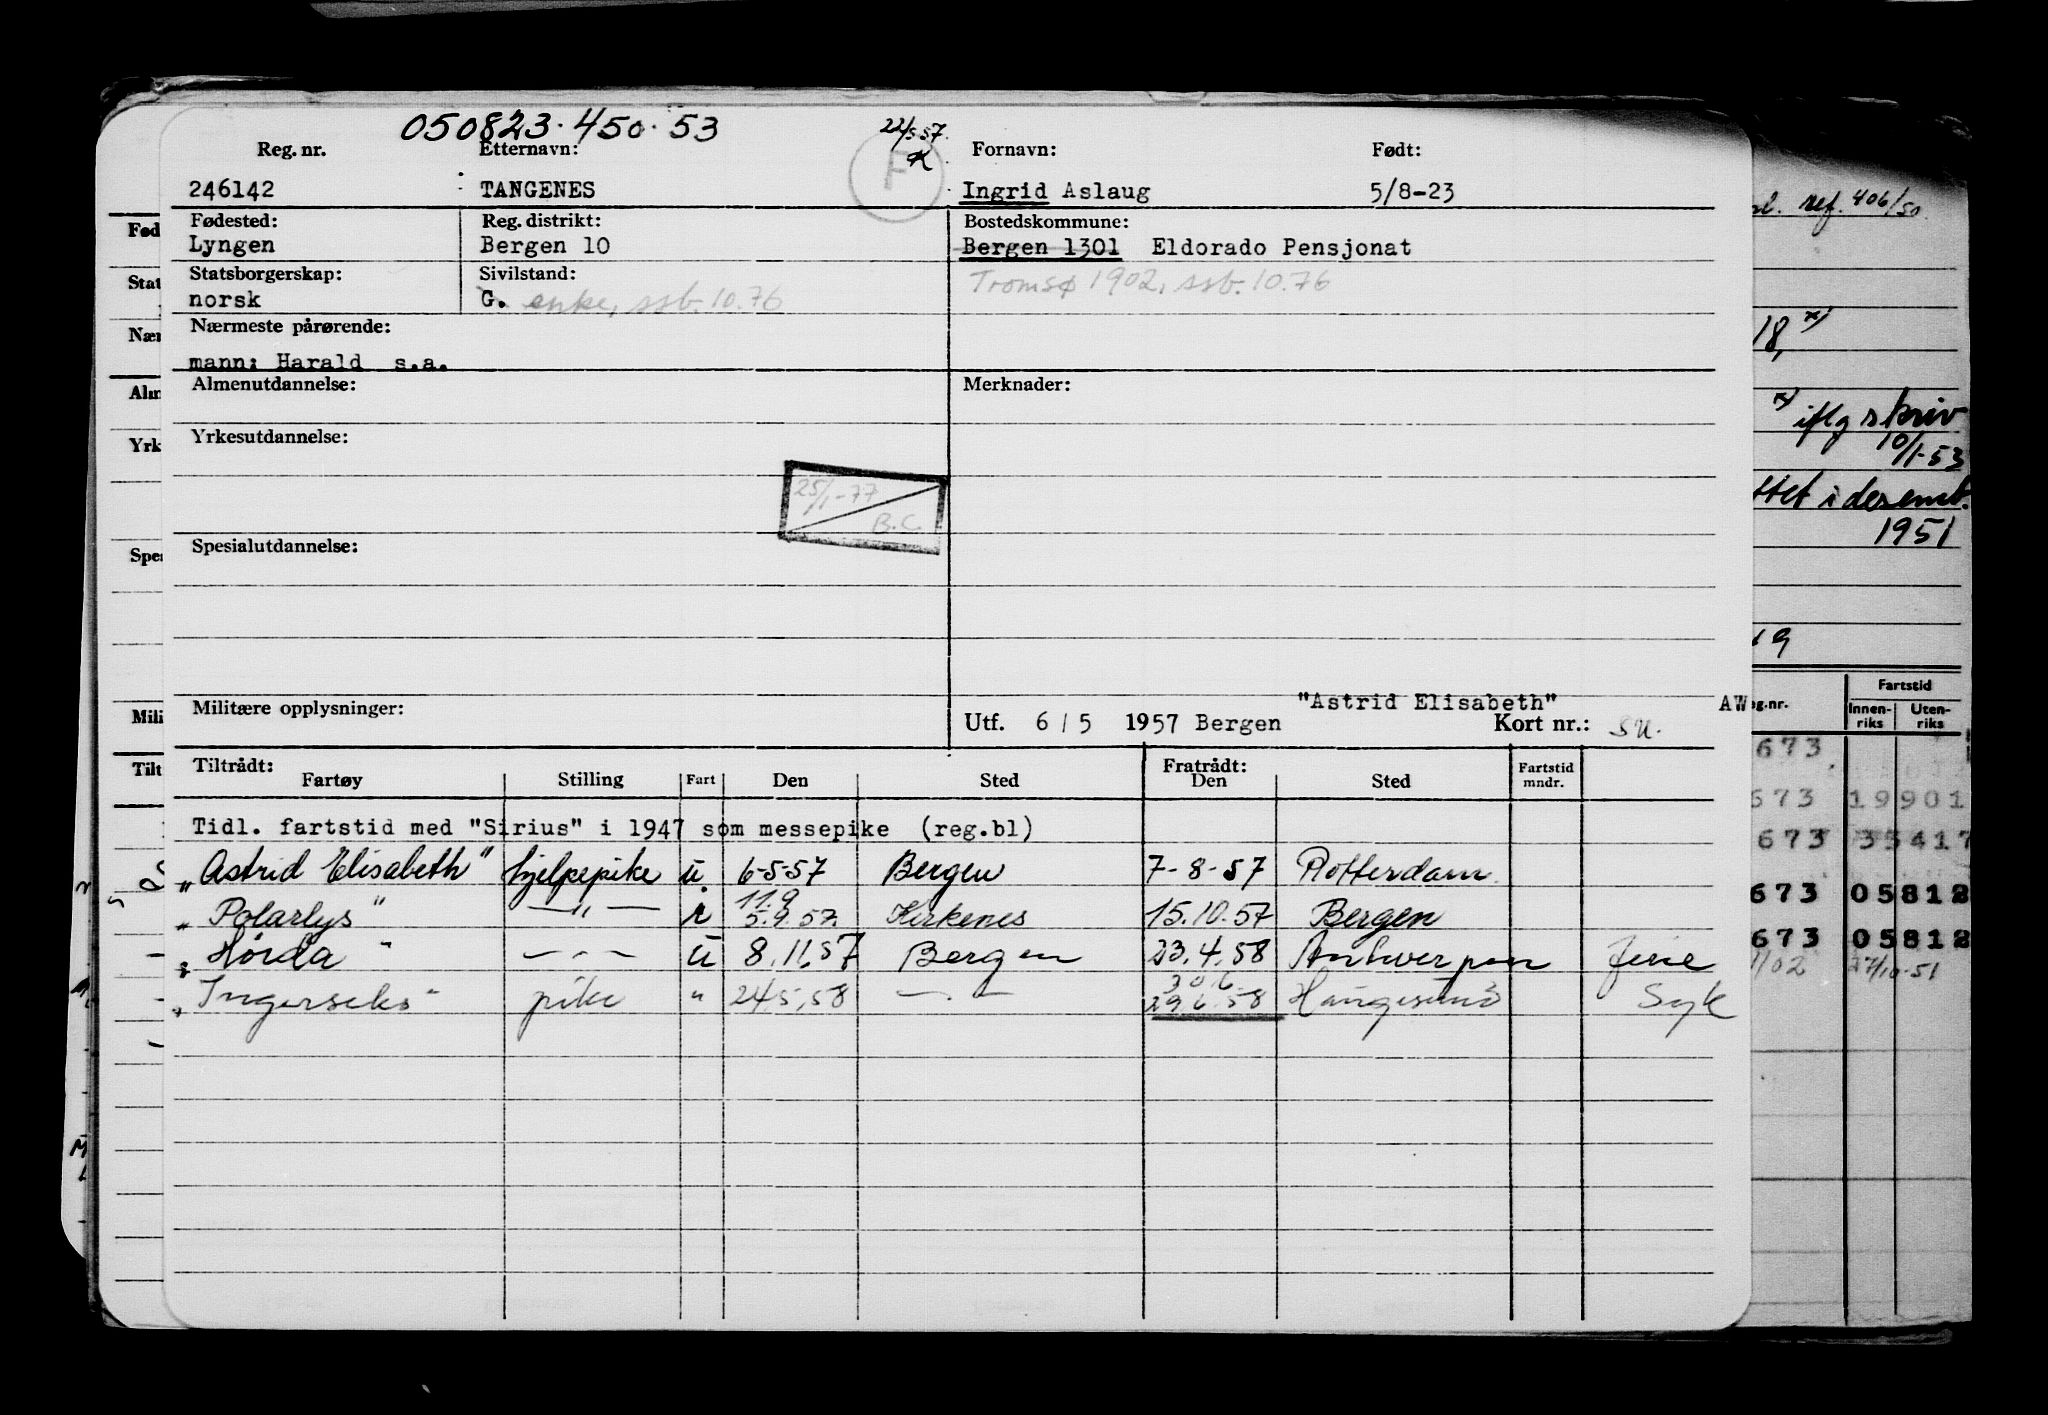 050823.450.53
22/5.57.
K
F
Reg. nr.
Etternavn:
Fornavn:
Født:
246142
TANGENES
Ingrid Aslaug
5/8-23
Fødested:
Reg. distrikt:
Bostedskommune:
Lyngen
Bergen 10
Bergen 1301 Eldorado Pensjonat
Statsborgerskap:
Sivilstand:
Tromsø 1902, ssb. 10.76
norsk
G. enke, ssb. 10.76
Nærmeste pårørende:
mann: Harald s.a.
Almenutdannelse:
Merknader:
Yrkesutdannelse:
25/1-77
B.C.
Spesialutdannelse:
Militære opplysninger:
"Astrid Elisabeth"
AW
Utf. 6/5 1957 Bergen
Kort nr.: SU.
Tiltrådt:
Fratrådt:
Fartøy Stilling Fart Den Sted Den Sted Fartstid mndr.
Tidl. fartstid med "Sirius" i 1947 som messepike (reg.bl)
"Astrid Elisabeth" hjelpepike u. 6-5-57 Bergen 7-8-57 Rotterdam
11.9
"Polarlys" —"— i 5.9.57. Kirkenes 15.10.57 Bergen
"Hørda" —"— u 8.11.57 Bergen 23.4.58 Antwerpen ferie
30.6
"Ingerseks" pike " 24.5.58 —"— 29.6.58 Haugesund Syk
Fød
Stat
Nær
Alm
Yrk
Spes
Mili
Tilt
ref. 406/50.
18, x)
x) iflg skriv
10/1-53
ttet i desemb.
1951
19
g.nr.
Fartstid
Innen-riks
Uten-riks
673
673 19901
673 33417
673 05812
673 05812
1/02 27/10-51